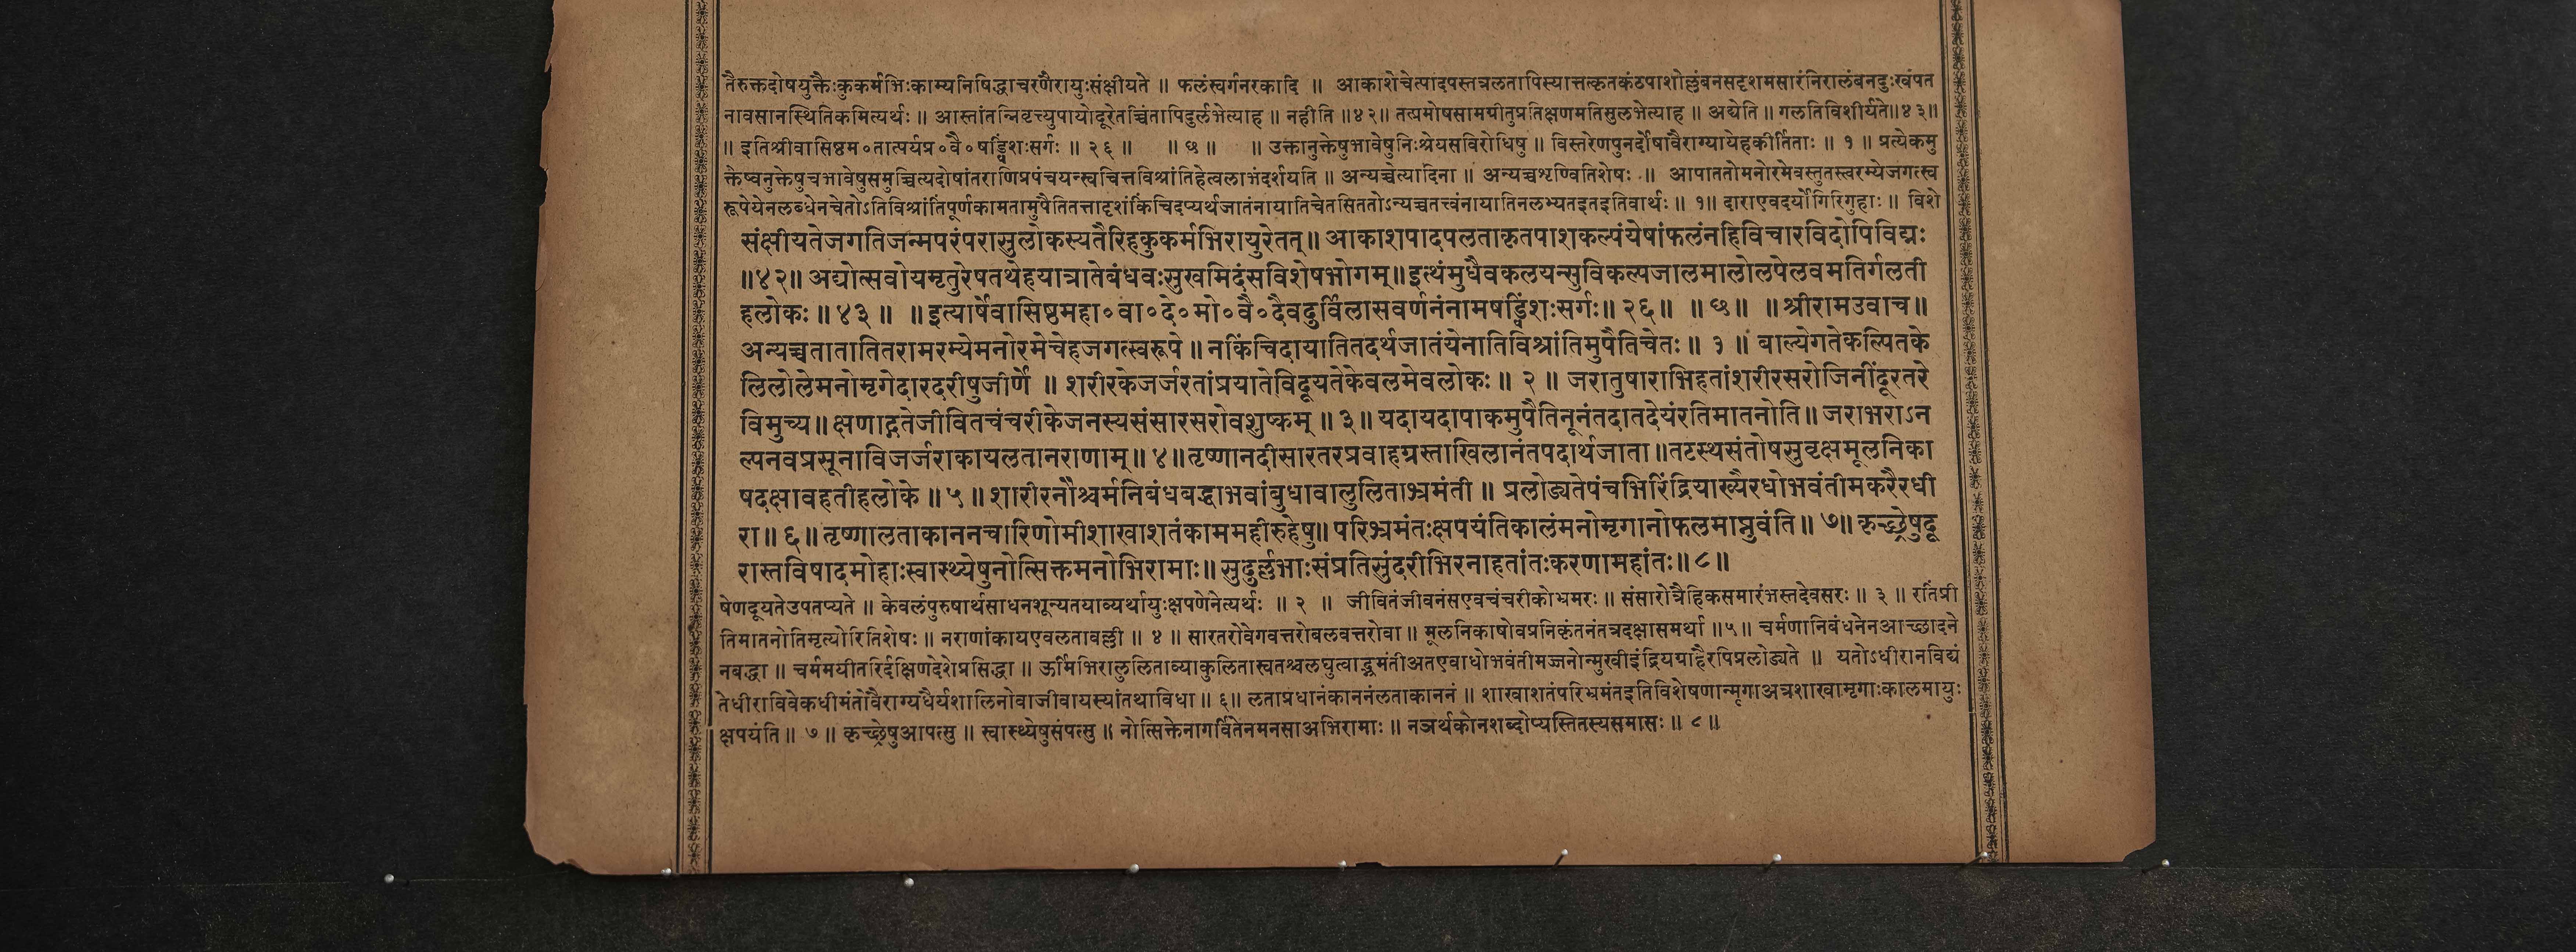 तैरुक्तदोषयुक्तैःकुकर्मभिःकाम्यनिषिद्धाचरणैरायुःसंक्षीयते ॥ फलंस्वर्गनरकादि ॥ आकाशेचेत्पादपस्तत्रलतापिस्यात्तत्कृतकंठपाशोल्लंबनसदृशमसारंनिरालंबनदुःखंपत
नावसानस्थितिकमित्यर्थः ॥ आस्तांतन्निवृत्त्युपायोदूरेतच्चिंतापिदुर्लभेत्याह ॥ नहीति ॥४२॥ तत्प्रमोषसामग्रीतुप्रतिक्षणमतिसुलभेत्याह ॥ अद्येति ॥ गलतिविशीर्यते॥४३॥
॥ इतिश्रीवासिष्ठम॰तात्पर्यप्र॰वै॰षड्विंशःसर्गः ॥ २६ ॥ ॥ छ ॥ ॥ उक्तानुक्तेषुभावेषुनिःश्रेयसविरोधिषु ॥ विस्तरेणपुनर्दोषावैराग्यायेहकीर्तिताः ॥ १ ॥ प्रत्येकमु
क्तेष्वनुक्तेषुचभावेषुसमुच्चित्यदोषांतराणिप्रपंचयन्स्वचित्तविश्रांतिहेत्वलाभंदर्शयति ॥ अन्यच्चेत्यादिना ॥ अन्यच्चशृण्वितिशेषः ॥ आपाततोमनोरमेवस्तुतस्त्वरम्येजगत्स्व
रूपेयेनलब्धेनचेतोऽतिविश्रांतिपूर्णकामतामुपैतितत्तादृशंकिंचिदप्यर्थजातंनायातिचेतसिततोऽन्यच्चतत्त्वंनायातिनलभ्यतइतइतिवार्थः ॥ १॥ दाराएवदर्योगिरिगुहाः ॥ विशे
संक्षीयतेजगतिजन्मपरंपरासुलोकस्यतैरिहकुकर्मभिरायुरेतत् ॥ आकाशपादपलताकृतपाशकल्पंयेषांफलंनहिविचारविदोपिविद्मः
॥४२॥ अद्योत्सवोयमृतुरेषतथेहयात्रातेबंधवःसुखमिदंसविशेषभोगम् ॥ इत्थंमुधैवकलयन्सुविकल्पजालमालोलपेलवमतिर्गलती
हलोकः ॥ ४३ ॥ ॥ इत्यार्षेवासिष्ठमहा॰वा॰दे॰मो॰वै॰दैवदुर्विलासवर्णनंनामषड्विंशःसर्गः ॥ २६ ॥ ॥ छ ॥ ॥ श्रीरामउवाच ॥
अन्यच्चतातातितरामरम्येमनोरमेचेहजगत्स्वरूपे ॥ नकिंचिदायातितदर्थजातंयेनातिविश्रांतिमुपैतिचेतः ॥ १ ॥ बाल्येगतेकल्पितके
लिलोलेमनोमृगेदारदरीषुजीर्णे ॥ शरीरकेजर्जरतांप्रयातेविदूयतेकेवलमेवलोकः ॥ २ ॥ जरातुषाराभिहतांशरीरसरोजिनींदूरतरे
विमुच्य ॥ क्षणाद्गतेजीवितचंचरीकेजनस्यसंसारसरोवशुष्कम् ॥ ३ ॥ यदायदापाकमुपैतिनूनंतदातदेयंरतिमातनोति ॥ जराभराऽन
ल्पनवप्रसूनाविजर्जराकायलतानराणाम् ॥ ४ ॥ तृष्णानदीसारतरप्रवाहग्रस्ताखिलानंतपदार्थजाता ॥ तटस्थसंतोषसुवृक्षमूलनिका
षदक्षावहतीहलोके ॥ ५ ॥ शारीरनौश्चर्मनिबंधबद्धाभवांबुधावालुलिताभ्रमंती ॥ प्रलोड्यतेपंचभिरिंद्रियाख्यैरधोभवंतीमकरैरधी
रा ॥ ६ ॥ तृष्णालताकाननचारिणोमीशाखाशतंकाममहीरुहेषु ॥ परिभ्रमंतःक्षपयंतिकालंमनोमृगानोफलमाप्नुवंति ॥ ७ ॥ कृच्छ्रेषुदू
रास्तविषादमोहाःस्वास्थ्येषुनोत्सिक्तमनोभिरामाः ॥ सुदुर्लभाःसंप्रतिसुंदरीभिरनाहतांतःकरणामहांतः ॥ ८ ॥
षेणदूयतेउपतप्यते ॥ केवलंपुरुषार्थसाधनशून्यतयाव्यर्थायुःक्षपणेनेत्यर्थः ॥ २ ॥ जीवितंजीवनंसएवचंचरीकोभ्रमरः ॥ संसारोत्रैहिकसमारंभस्तदेवसरः ॥ ३ ॥ रतिंप्री
तिमातनोतिमृत्योरितिशेषः ॥ नराणांकायएवलतावल्ली ॥ ४ ॥ सारतरोवेगवत्तरोबलवत्तरोवा ॥ मूलनिकाषोवप्रनिकृंतनंतत्रदक्षासमर्था ॥५॥ चर्मणानिबंधनेनआच्छादने
नबद्धा ॥ चर्ममयीतरिर्दक्षिणदेशेप्रसिद्धा ॥ ऊर्मिभिरालुलिताव्याकुलितास्वतश्चलघुत्वाद्भ्रमंतीअतएवाधोभवंतीमज्जनोन्मुखीइंद्रियग्राहैरपिप्रलोड्यते ॥ यतोऽधीरानविद्यं
तेधीराविवेकधीमंतोवैराग्यधैर्यशालिनोवाजीवायस्यांतथाविधा ॥ ६॥ लताप्रधानंकाननंलताकाननं ॥ शाखाशतंपरिभ्रमंतइतिविशेषणान्मृगाअत्रशाखामृगाःकालमायुः
क्षपयंति ॥ ७ ॥ कृच्छ्रेषुआपत्सु ॥ स्वास्थ्येषुसंपत्सु ॥ नोत्सिक्तेनागर्वितेनमनसाअभिरामाः ॥ नञर्थकोनशब्दोप्यस्तितस्यसमासः ॥ ८ ॥